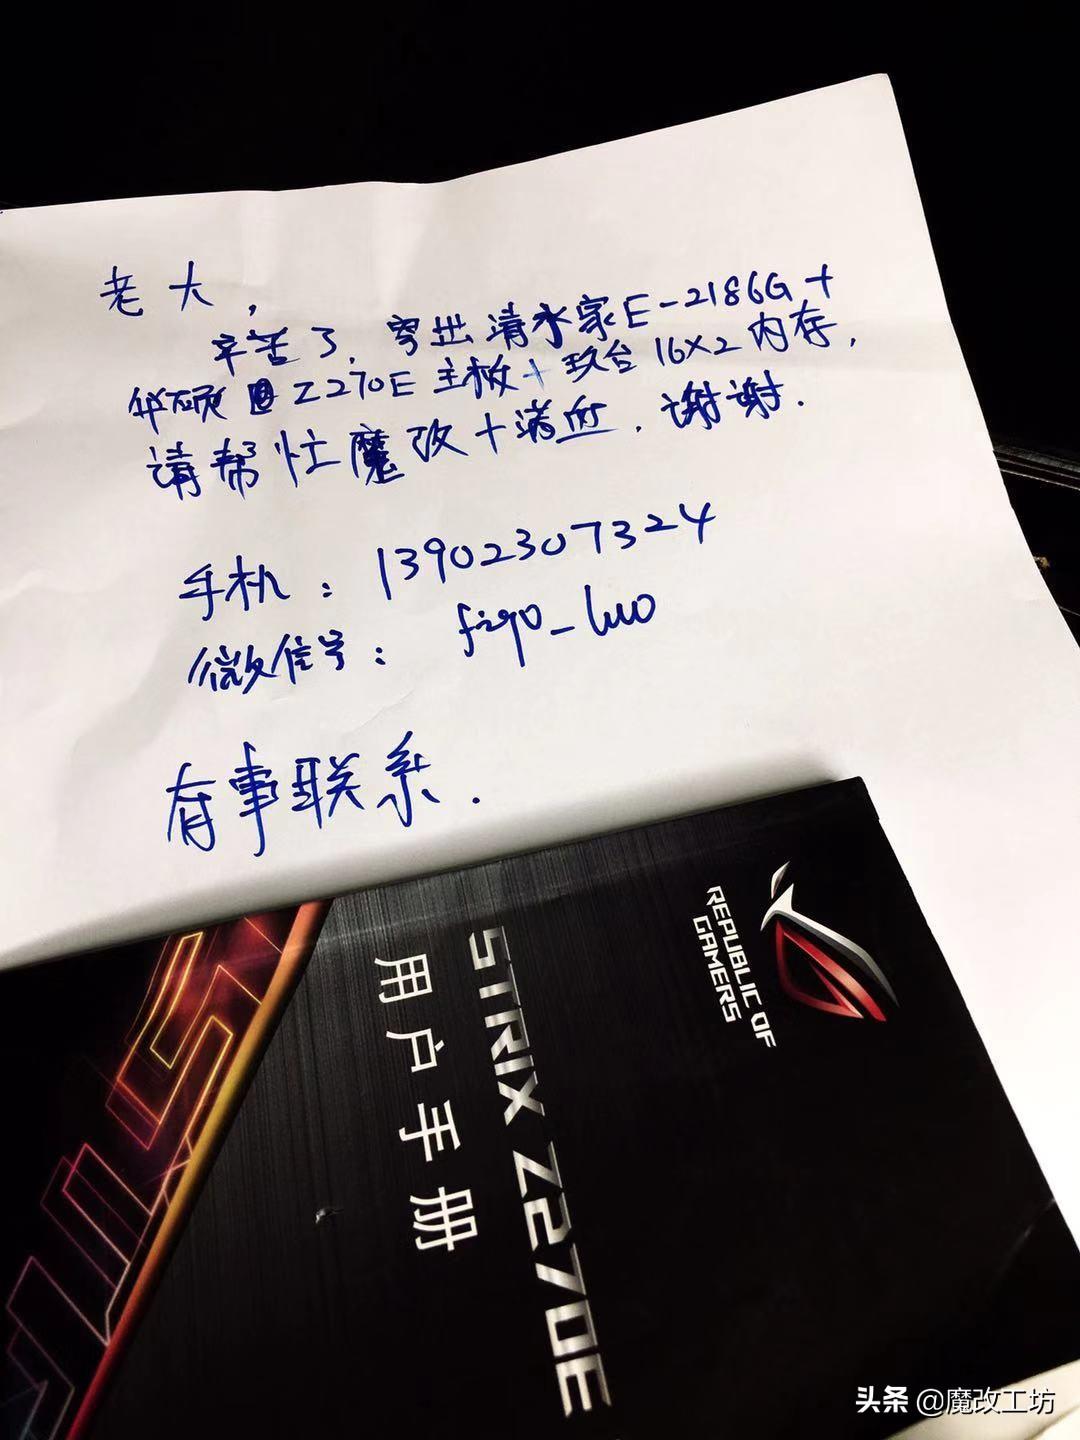 老大，
辛苦了，寄出清水家E-2186G+
华硕Z270E主板+玖合16X2内存，
请帮忙魔改+满血，谢谢.
手机：13902307324
微信号：figo_luo
有事联系.
REPUBLIC OF
GAMERS
STRIX Z270E
用户手册
头条 @魔改工坊